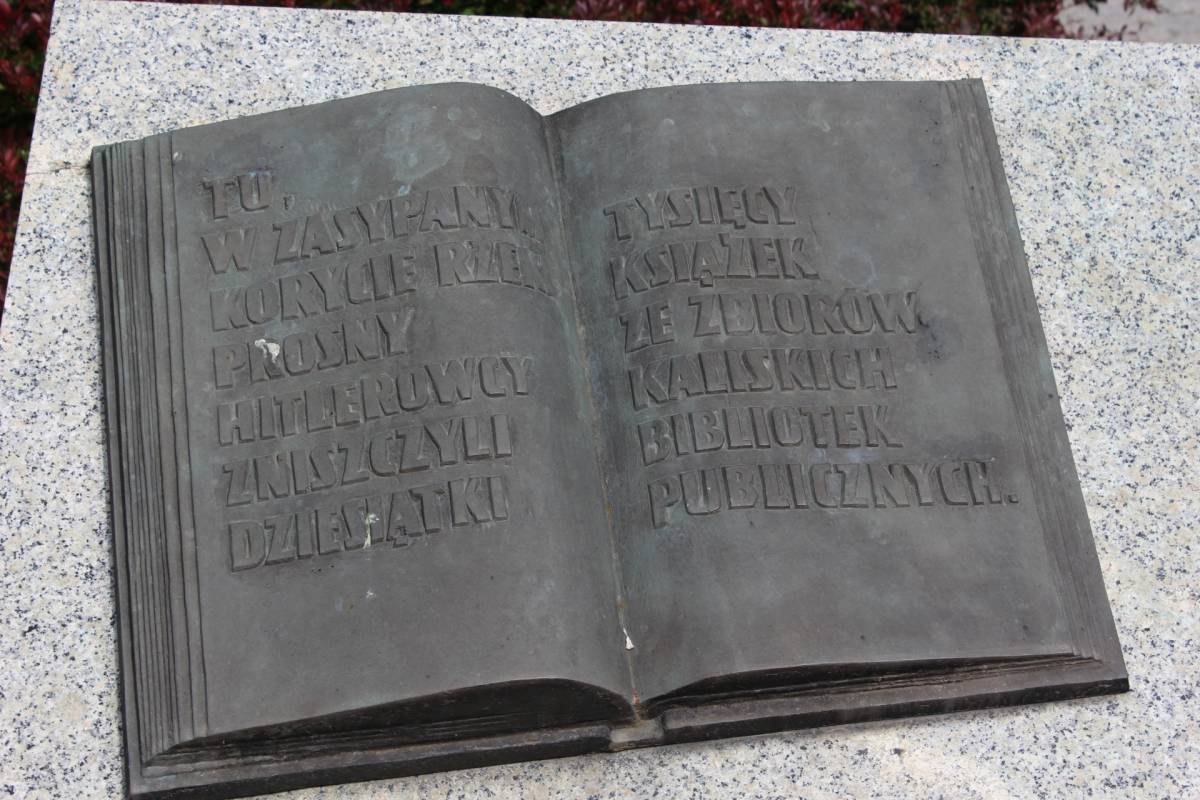 TU,
W ZASYPANYM
KORYCIE RZEKI
PROSNY
HITLEROWCY
ZNISZCZYLI
DZIESIĄTKI
TYSIĘCY
KSIĄŻEK
ZE ZBIORÓW
KALISKICH
BIBLIOTEK
PUBLICZNYCH.